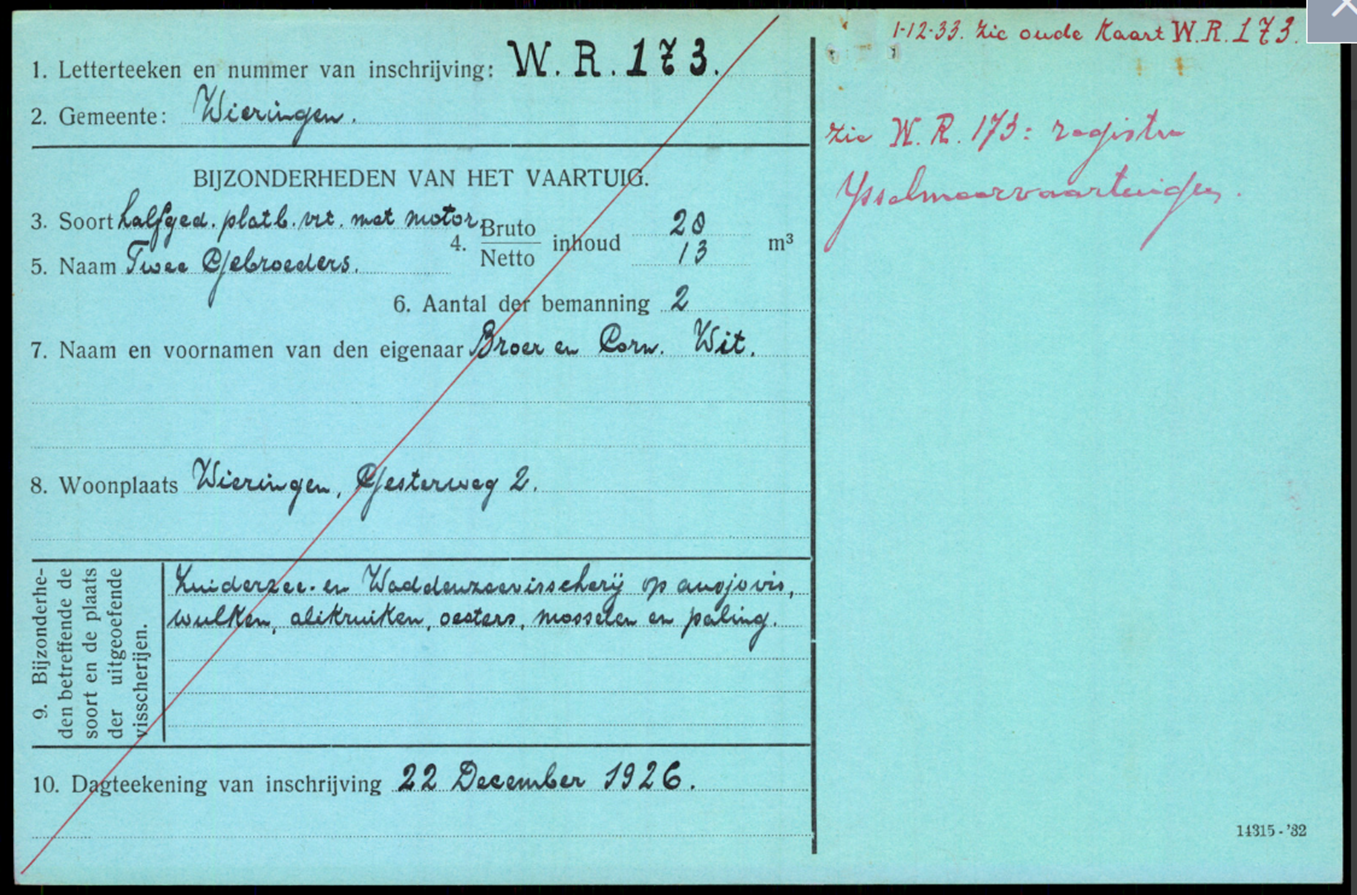 1. Letterteeken en nummer van inschrijving: W.R.173.
2. Gemeente: Wieringen.
BIJZONDERHEDEN VAN HET VAARTUIG.
3. Soort halfged. platb. vrt. met motor.
4. Bruto inhoud 20 m³
Netto 13
5. Naam Twee Gebroeders.
6. Aantal der bemanning 2
7. Naam en voornamen van den eigenaar Broer en Corn. Wit.
8. Woonplaats Wieringen, Gesterweg 2.
9. Bijzonderhe-
den betreffende de
soort en de plaats
der uitgeoefende
visscherijen.
Zuiderzee- en Waddenzeevisscherij op ansjovis,
wulken, alikruiken, oesters, mosselen en paling.
10. Dagteekening van inschrijving 22 December 1926.
1-12-33. Zie oude Kaart W.R.173.
Zie W.R. 173: register
Ysselmeervaartuigen.
14315-'32